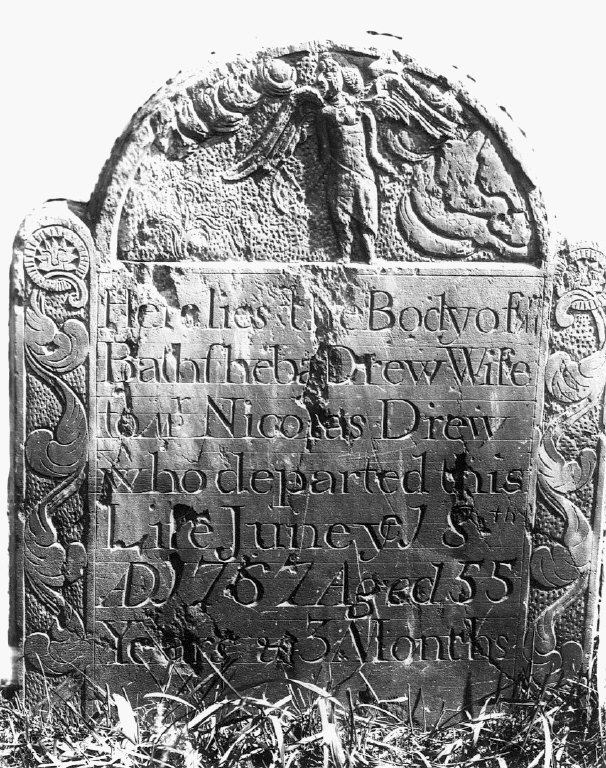 Here lies the Body of
Bathſheba Drew Wife
to Mr Nicolas Drew
who departed this
Life June ye 18th
AD 1767 Aged 55
Years & 3 Months